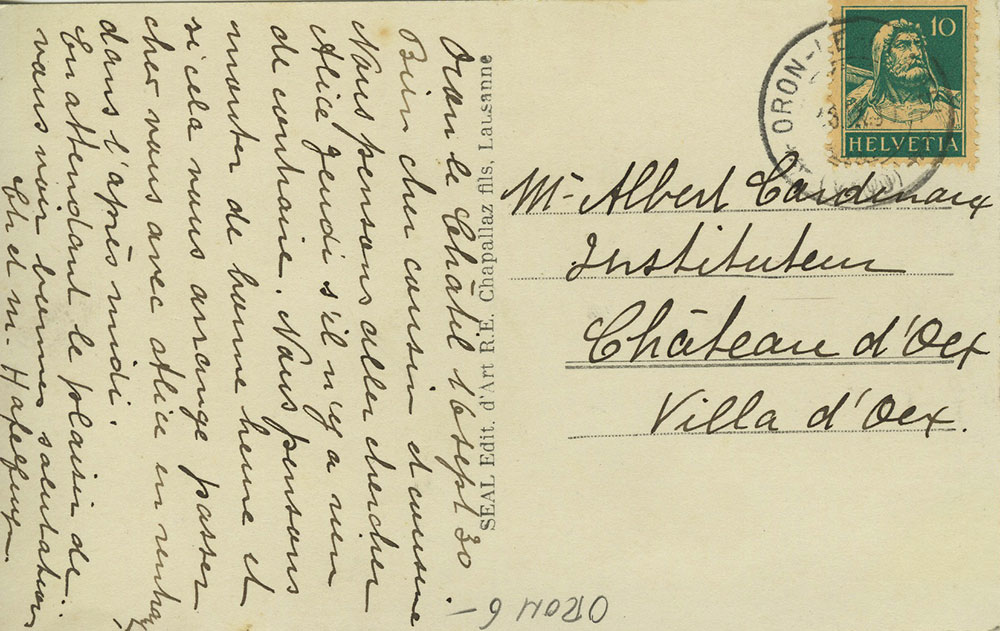 Oron le Châtil 16 sept 30
Bien cher cousin et cousine
Nous pensons aller chercher
Alice jeudi s'il n'y a rien
de contraire. Nous pensons
monter de bonne heure et
si cela vous arrange passer
cher vous avec Alice en
dans l'après midi.
En attendant le plaisir de
vous voir bonnes salutations
Ch et M.
SEAL Edit. d'Art R.E. Chapallaz fils, Lausanne
10
HELVETIA
ORON-LE
Mr Albert Cardinaux
Instituteur
Château d'Oex
Villa d'Oex.
ORON 6-